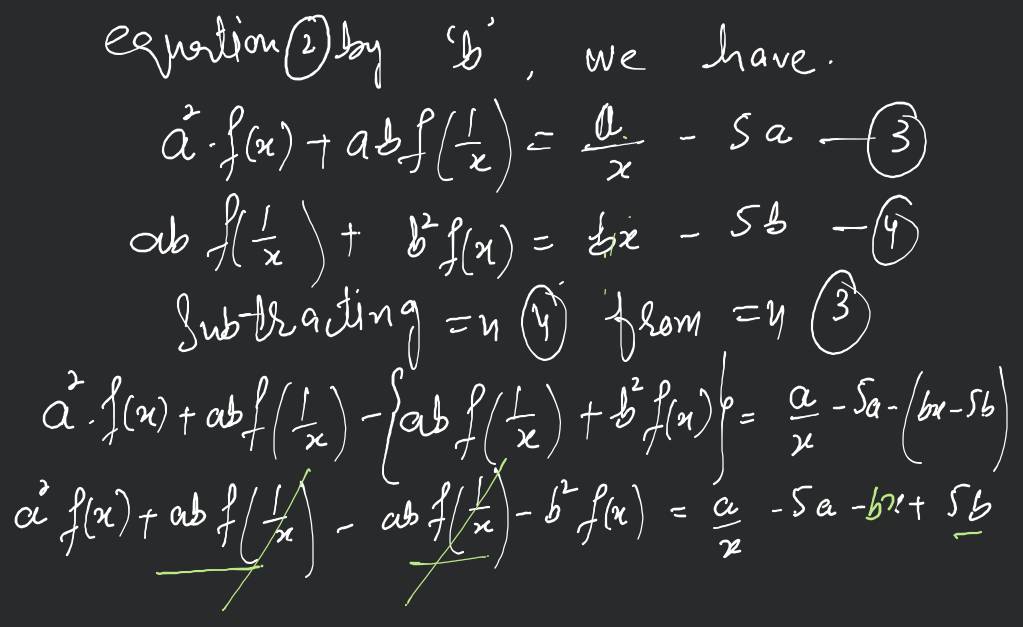 equation ② by 'b', we have.
a².f(x) + abf(1/x) = a/x - 5a — ③
ab f(1/x) + b² f(x) = bx - 5b — ④
Subtracting =n ④ from =n ③
a².f(x) + abf(1/x) - {ab f(1/x) + b² f(x)} = a/x - 5a - (bx - 5b)
a² f(x) + ab f(1/x) - ab f(1/x) - b² f(x) = a/x - 5a - bx + 5b